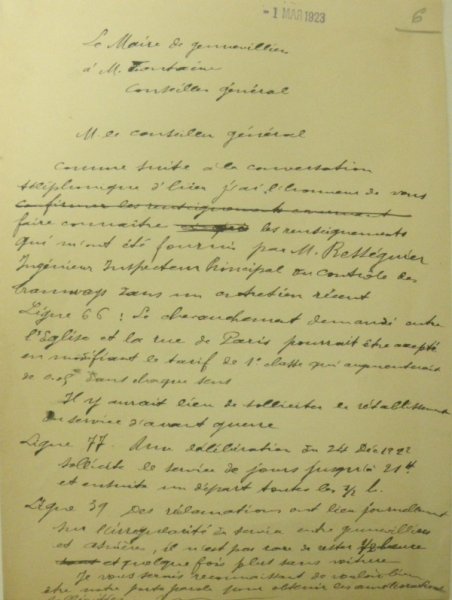 - 1 MAR 1923
6
Le Maire de Gennevilliers
à M. Fontaine
Conseiller général
M. le conseiller général
Comme suite à la conversation
téléphonique d'hier j'ai l'honneur de vous
confirmer les renseignements
faire connaître les renseignements
qui m'ont été fournis par M. Rességuier
Ingénieur Inspecteur Principal du Contrôle des
tramways dans un entretien récent
Ligne 66 : Le chevauchement demandé entre
l'Eglise et la rue de Paris pourrait être accepté
en modifiant le tarif de 1e classe qui augmenterait
de 0.05 dans chaque sens
Il y aurait lieu de solliciter le rétablissement
du service d'avant guerre
Ligne 77. Une délibération du 24 Déc 1922
sollicite le service de jours jusqu'à 21h
et ensuite un départ toutes les 1/2 h.
Ligne 39 Des réclamations ont lieu journellement
sur l'irrégularité du service entre Gennevilliers
et Asnières, il n'est pas rare de rester 1/2 heure
et quelque fois plus sans voiture
Je vous serais reconnaissant de vouloir bien
être notre porte parole pour obtenir les améliorations